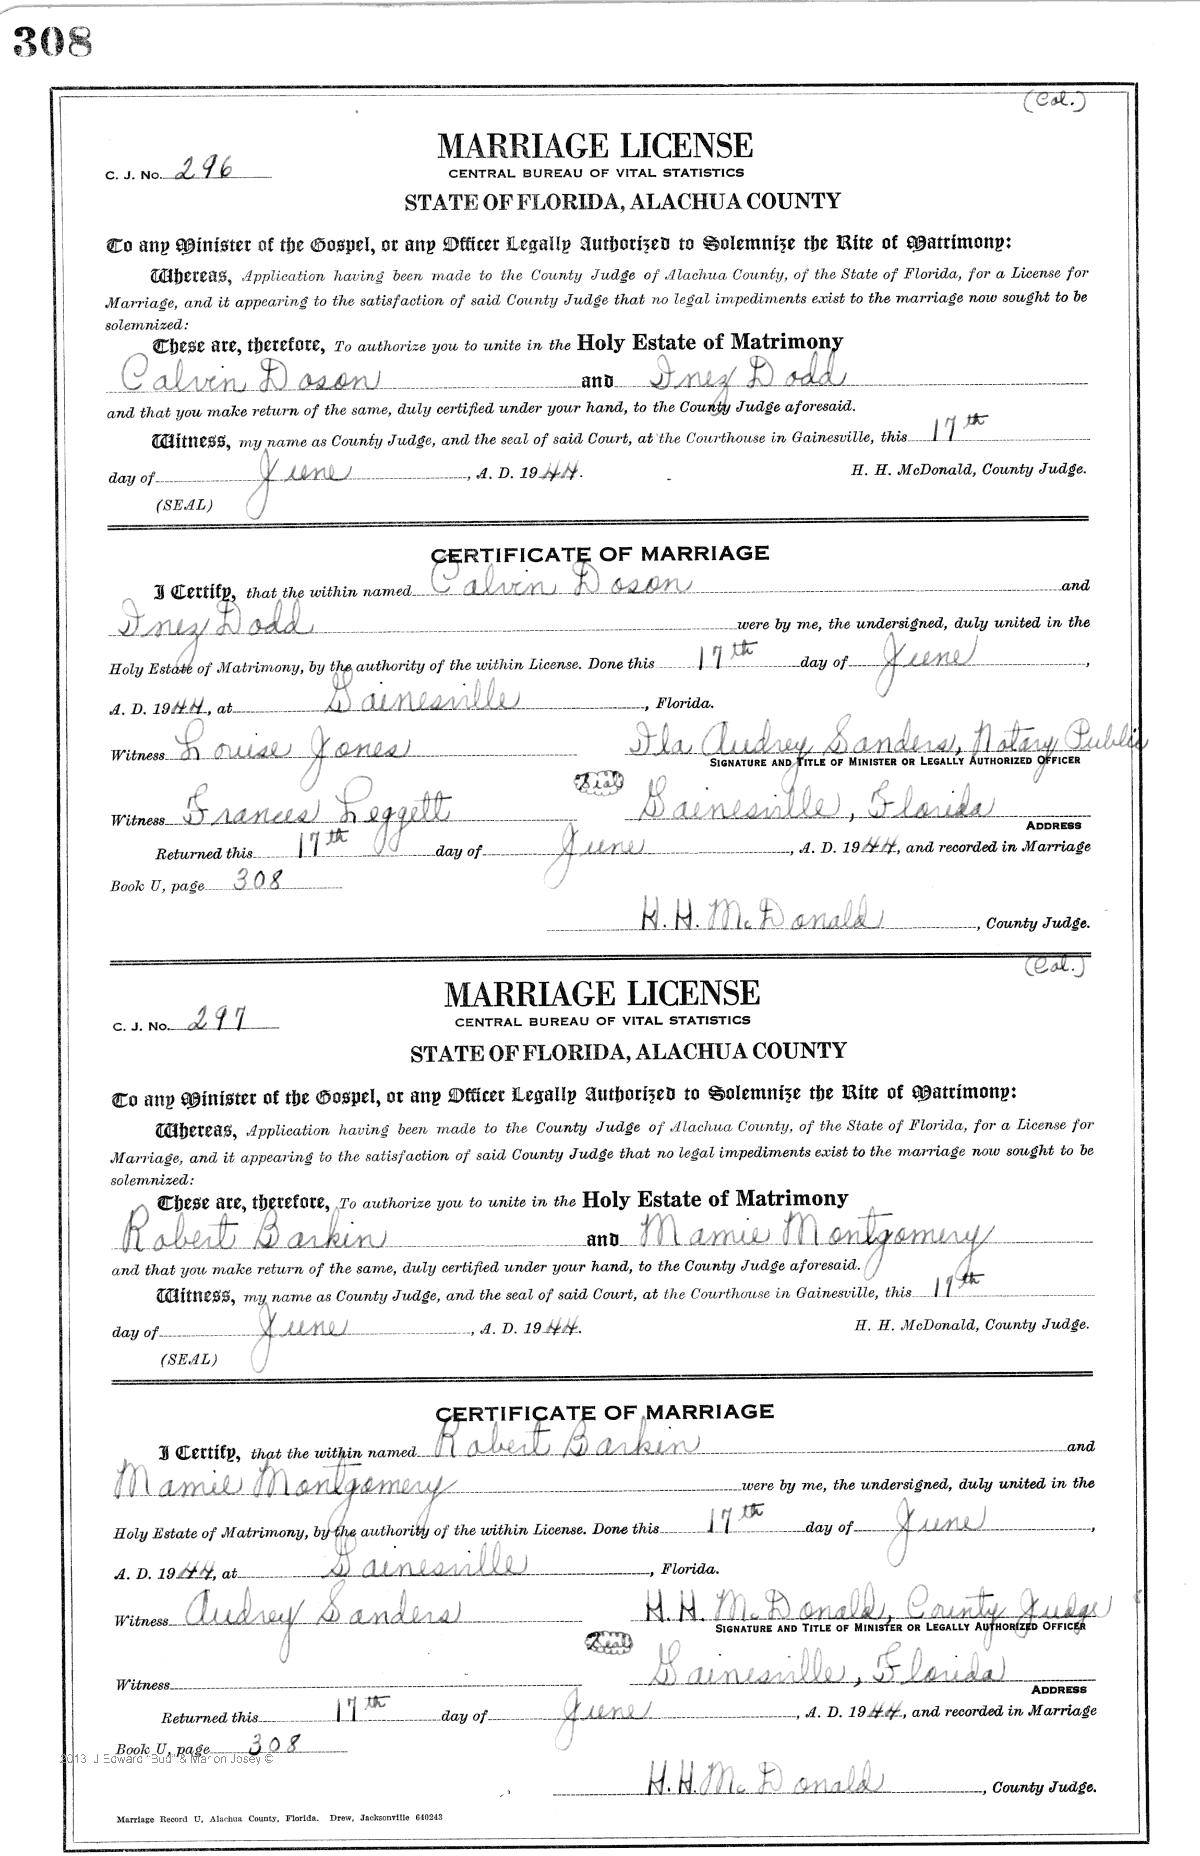 308
(Col.)
MARRIAGE LICENSE
C. J. No. 296
CENTRAL BUREAU OF VITAL STATISTICS
STATE OF FLORIDA, ALACHUA COUNTY
To any Minister of the Gospel, or any Officer Legally Authorized to Solemnize the Rite of Matrimony:
Whereas, Application having been made to the County Judge of Alachua County, of the State of Florida, for a License for
Marriage, and it appearing to the satisfaction of said County Judge that no legal impediments exist to the marriage now sought to be
solemnized:
These are, therefore, To authorize you to unite in the Holy Estate of Matrimony
Calvin Doson and Inez Dodd
and that you make return of the same, duly certified under your hand, to the County Judge aforesaid.
Witness, my name as County Judge, and the seal of said Court, at the Courthouse in Gainesville, this 17th
day of June, A. D. 1944. H. H. McDonald, County Judge.
(SEAL)
CERTIFICATE OF MARRIAGE
I Certify, that the within named Calvin Doson and
Inez Dodd were by me, the undersigned, duly united in the
Holy Estate of Matrimony, by the authority of the within License. Done this 17th day of June,
A. D. 1944, at Gainesville, Florida.
Witness Louise Jones Ila Audrey Sanders, Notary Public
SIGNATURE AND TITLE OF MINISTER OR LEGALLY AUTHORIZED OFFICER
Seal
Witness Frances Leggett Gainesville, Florida
ADDRESS
Returned this 17th day of June, A. D. 1944, and recorded in Marriage
Book U, page 308
H. H. McDonald, County Judge.
(Col.)
MARRIAGE LICENSE
C. J. No. 297
CENTRAL BUREAU OF VITAL STATISTICS
STATE OF FLORIDA, ALACHUA COUNTY
To any Minister of the Gospel, or any Officer Legally Authorized to Solemnize the Rite of Matrimony:
Whereas, Application having been made to the County Judge of Alachua County, of the State of Florida, for a License for
Marriage, and it appearing to the satisfaction of said County Judge that no legal impediments exist to the marriage now sought to be
solemnized:
These are, therefore, To authorize you to unite in the Holy Estate of Matrimony
Robert Barkin and Mamie Montgomery
and that you make return of the same, duly certified under your hand, to the County Judge aforesaid.
Witness, my name as County Judge, and the seal of said Court, at the Courthouse in Gainesville, this 17th
day of June, A. D. 1944. H. H. McDonald, County Judge.
(SEAL)
CERTIFICATE OF MARRIAGE
I Certify, that the within named Robert Barkin and
Mamie Montgomery were by me, the undersigned, duly united in the
Holy Estate of Matrimony, by the authority of the within License. Done this 17th day of June,
A. D. 1944, at Gainesville, Florida.
Witness Audrey Sanders H. H. McDonald, County Judge
SIGNATURE AND TITLE OF MINISTER OR LEGALLY AUTHORIZED OFFICER
Seal
Gainesville, Florida
Witness ADDRESS
Returned this 17th day of June, A. D. 1944, and recorded in Marriage
Book U, page 308
2013 J Edward "Bud" & Marion Josey ©
H. H. McDonald, County Judge.
Marriage Record U, Alachua County, Florida. Drew, Jacksonville 640243